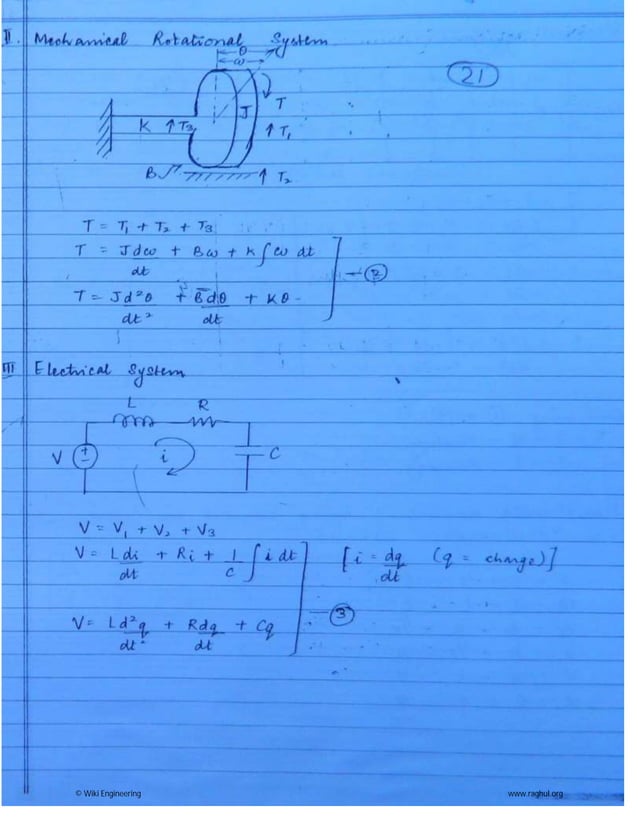 II. Mechanical Rotational System
21
θ
ω
T
J
K ↑T3
↑T1
B
↑T2
T = T1 + T2 + T3
T = J dω/dt + Bω + K∫ω dt
— 2
T = J d²θ/dt² + B dθ/dt + Kθ
III Electrical System
L R
V + - i C
V = V1 + V2 + V3
V = L di/dt + Ri + 1/C ∫ i dt [i = dq/dt (q = charge)]
— 3
V = L d²q/dt² + R dq/dt + Cq
© Wiki Engineering www.raghul.org